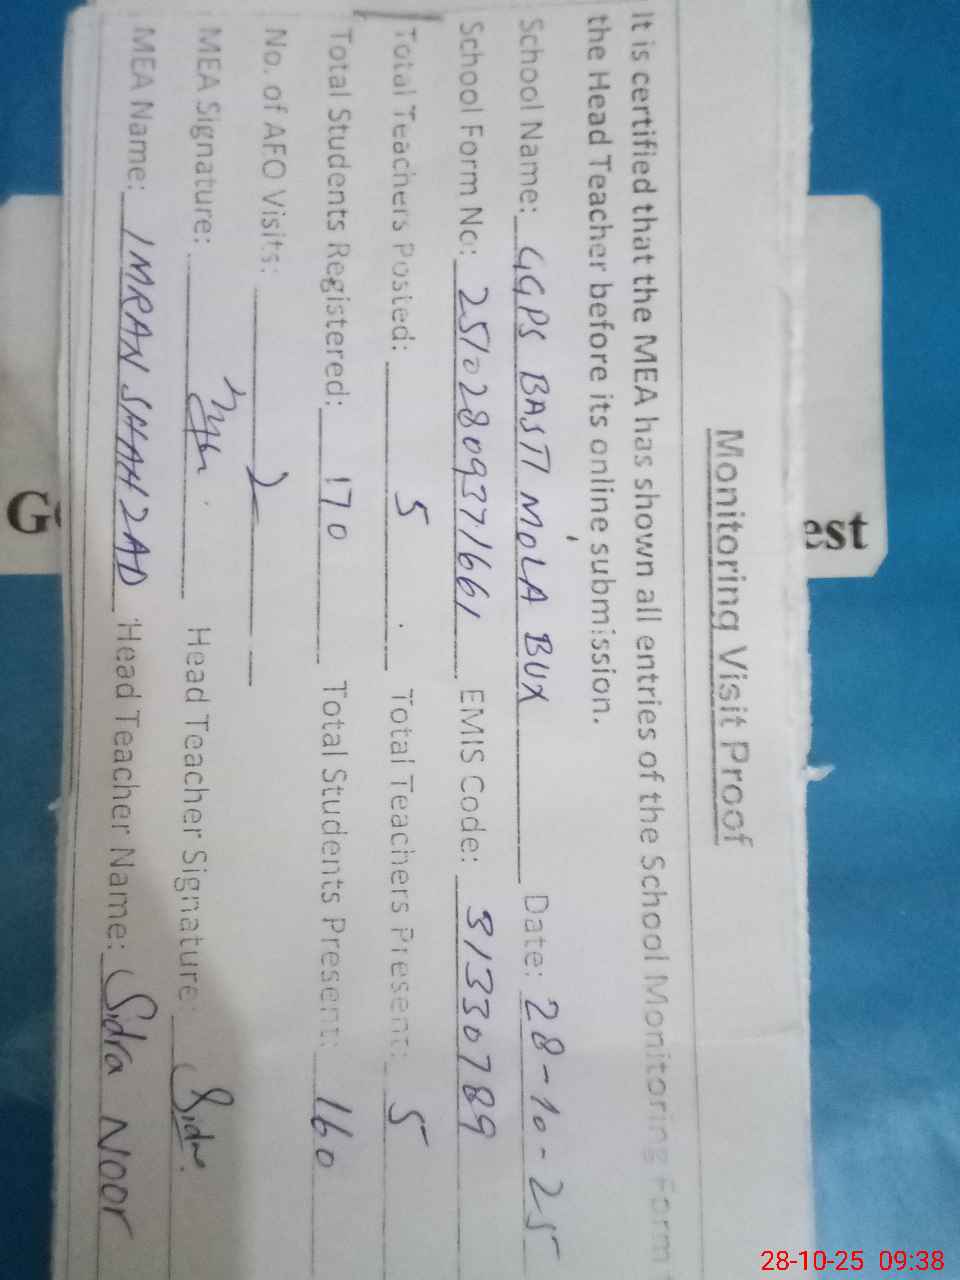 Monitoring Visit Proof
It is certified that the MEA has shown all entries of the School Monitoring Form
the Head Teacher before its online submission.
School Name: GGPS BASTI MOLA BUX Date: 28-10-25
School Form No: 251028093771661 EMIS Code: 31330789
Total Teachers Posted: 5 Total Teachers Present: 5
Total Students Registered: 170 Total Students Present: 160
No. of AEO Visits: 2
MEA Signature: Head Teacher Signature: Sidra
MEA Name: IMRAN SHAHZAD Head Teacher Name: Sidra Noor
est
G
28-10-25 09:38